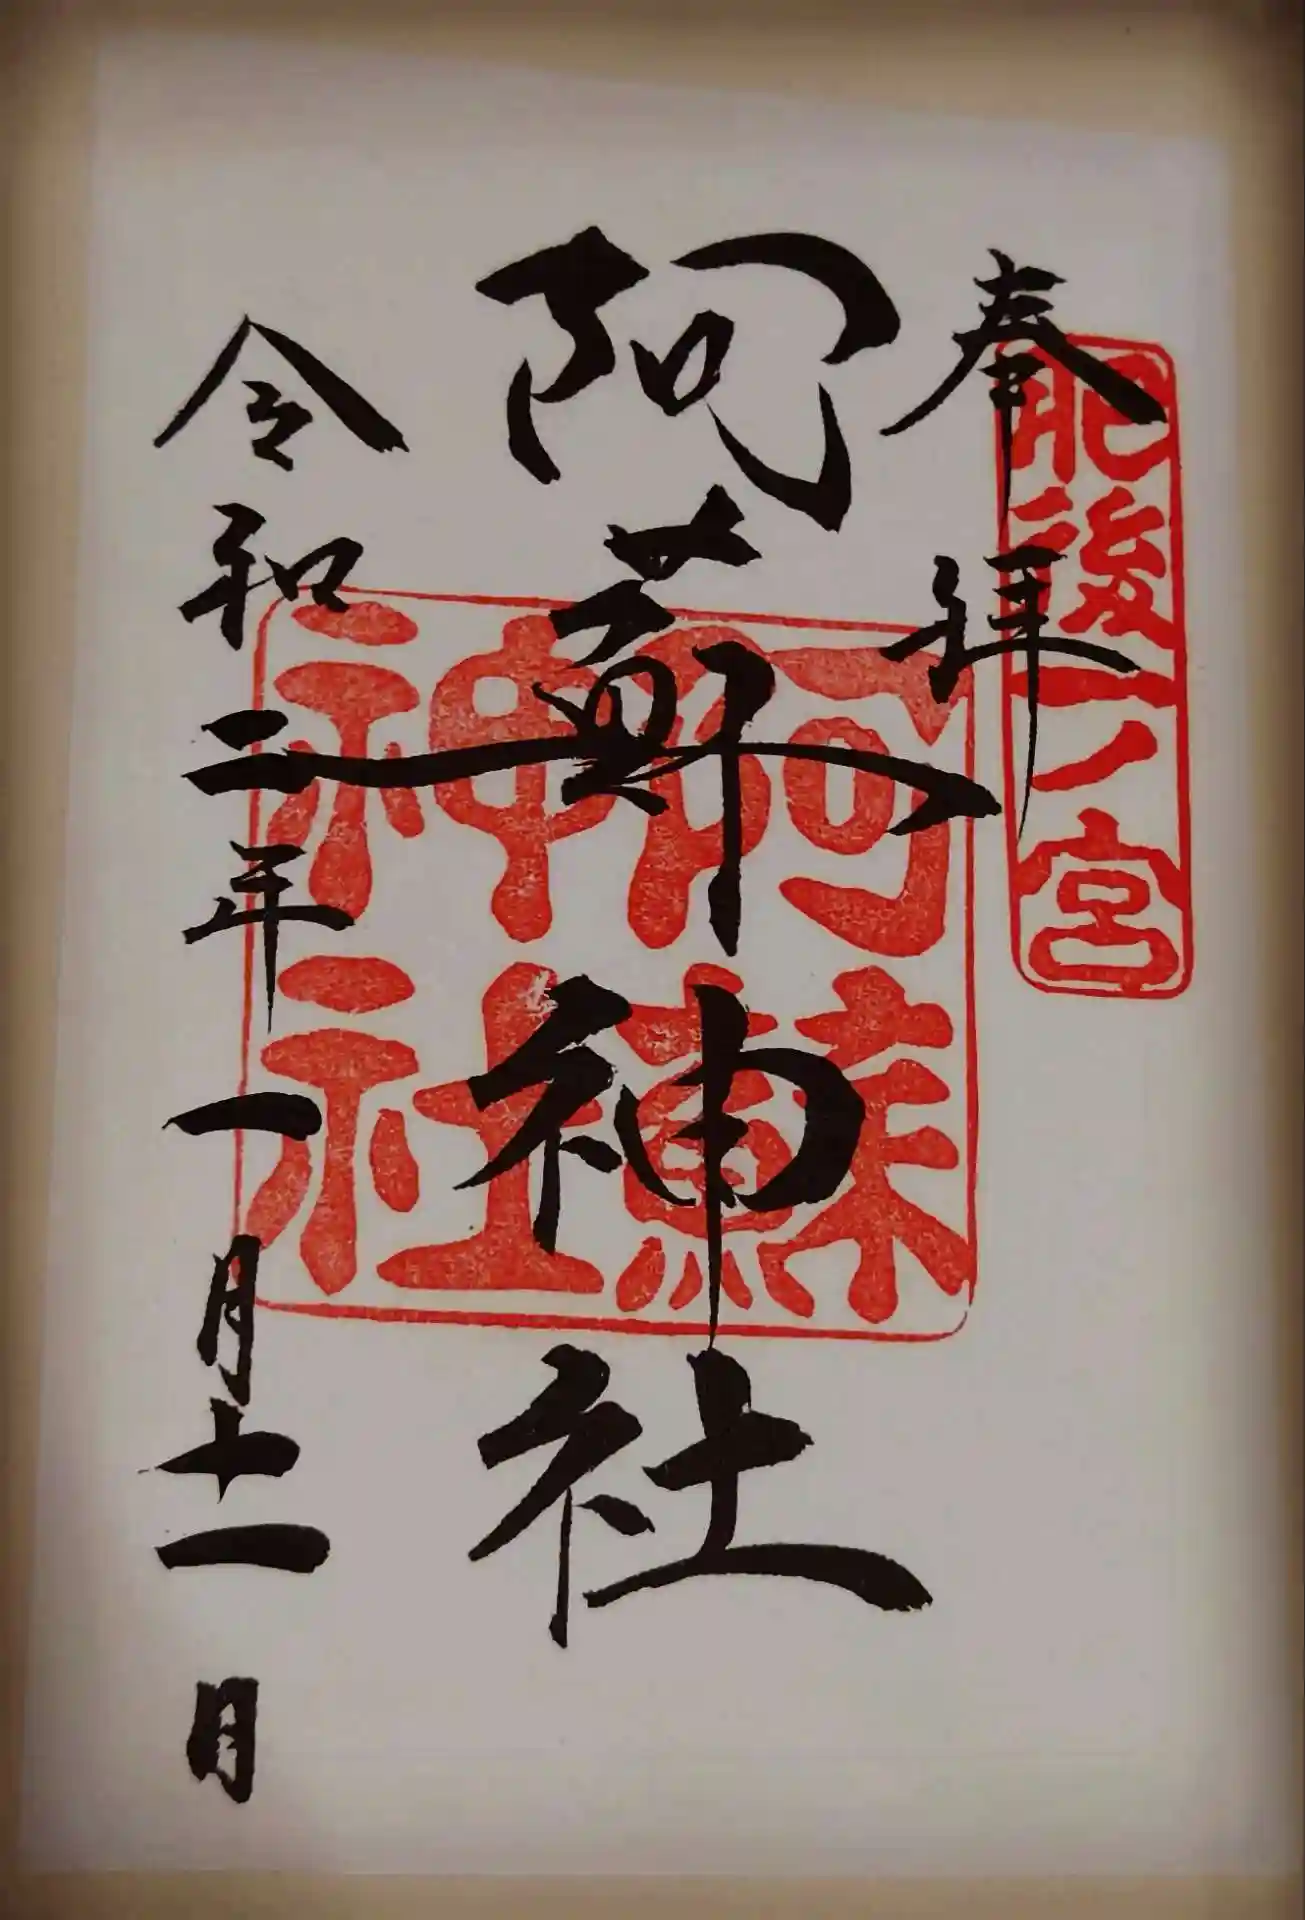 奉拝
肥後一ノ宮
阿蘇神社
阿蘇
神社
令和二年一月十一日